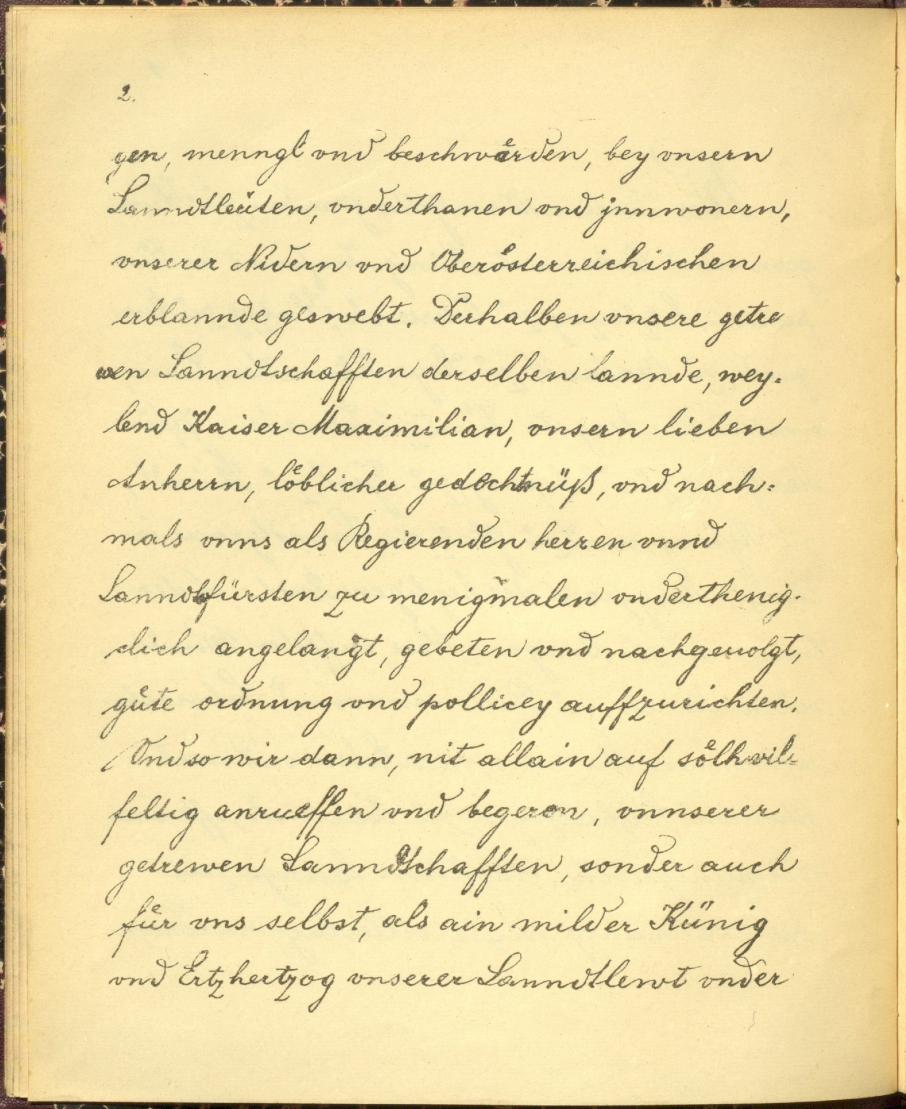 2.
gen, menngl vnd beschwården, bey vnsern
Lanndtleüten, vnderthanen vnd jnnwonern,
vnserer Nidern vnd Oberösterreichischen
erblannde geswebt. Derhalben vnsere getre
wen Lanndtschafften derselben lannde, wey-
lend Kaiser Maximilian, vnsern lieben
Anherrn, loͤblicher gedechtnüß, vnd nach-
mals vnns als Regierenden herren vnnd
Lanndtfürsten zu menigmalen vnderthenig-
clich angelangt, gebeten vnd nachgeuolgt,
gůte ordnung vnd pollicey auffzurichten.
Vnd so wir dann, nit allain auf soͤlh vil-
feltig anrueffen vnd begeren, vnnserer
getrewen Lanndtschafften, sonder auch
fuͤr vns selbst, als ain milder Künig
vnd Ertzhertzog vnserer Lanndtlewt vnder